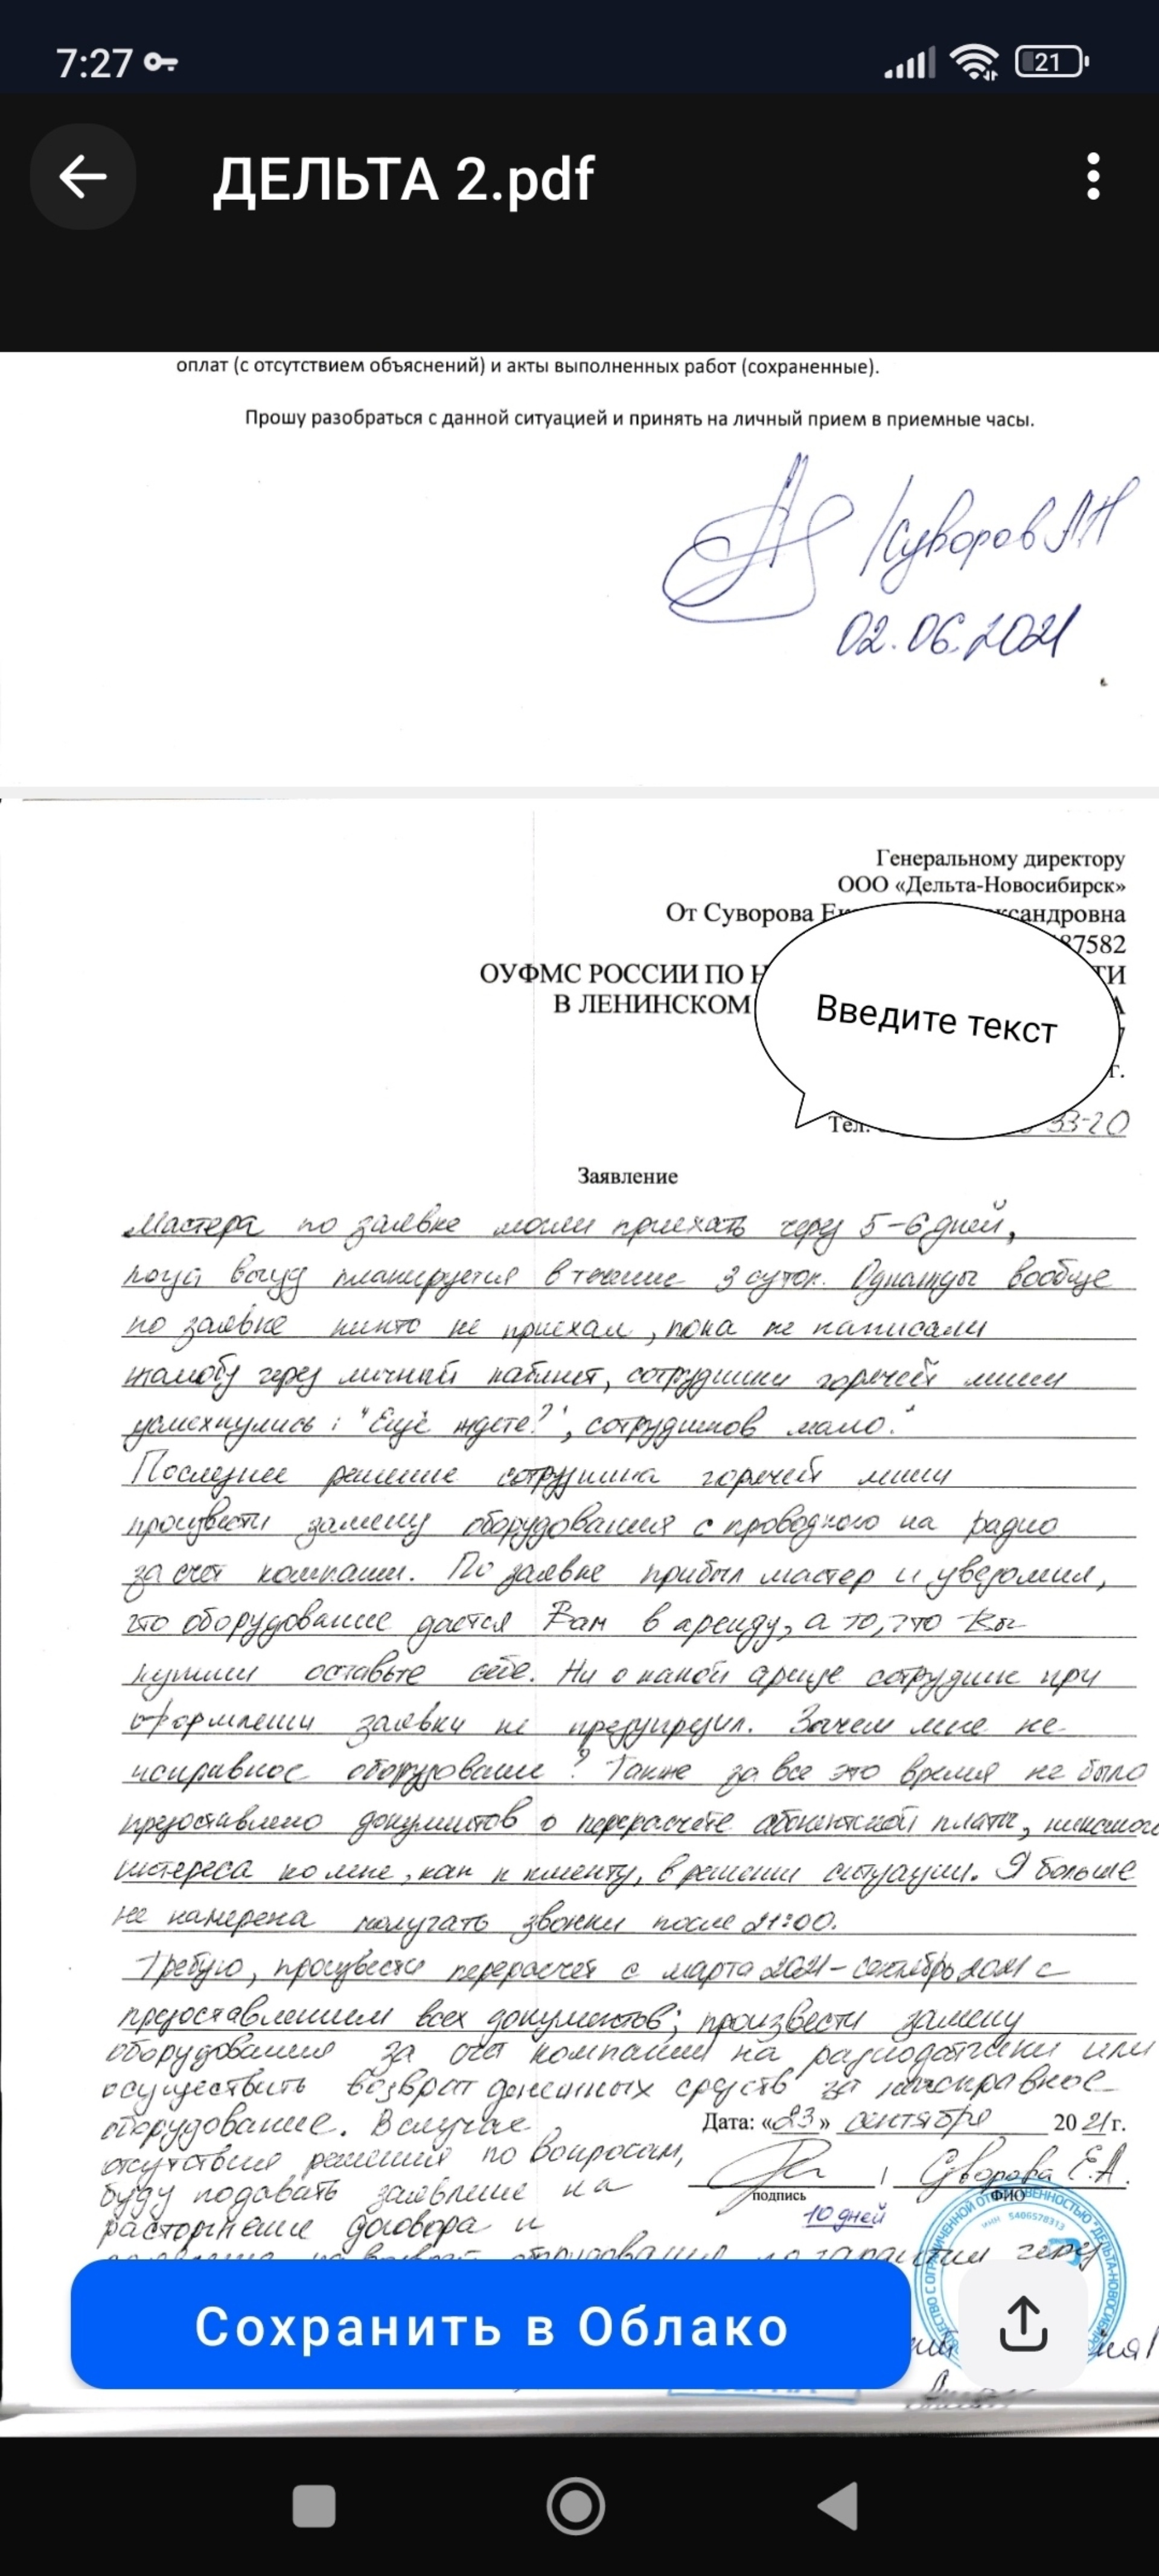 7:27
21
ДЕЛЬТА 2.pdf
оплат (с отсутствием объяснений) и акты выполненных работ (сохраненные).
Прошу разобраться с данной ситуацией и принять на личный прием в приемные часы.
/Суворов АН
02.06.2021
Генеральному директору
ООО «Дельта-Новосибирск»
От Суворова сандровна
87582
ОУФМС РОССИИ ПО ТИ
В ЛЕНИНСКОМ
Введите текст
г.
Тел. 33-20
Заявление
Мастера по заявке могли приехать через 5-6 дней,
когда выезд планируется в течение 3 суток. Однажды вообще
по заявке никто не приехал, пока не написали
жалобу через личный кабинет, сотрудники горячей линии
усмехнулись: "Ещё ждете?", сотрудников мало."
Последнее решение сотрудника горячей линии
произвести замену оборудования с проводного на радио
за счет компании. По заявке прибыл мастер и уведомил,
что оборудование дается Вам в аренду, а то, что Вы
купили оставьте себе. Ни о какой аренде сотрудник при
оформлении заявки не предупредил. Зачем мне не
исправное оборудование? Также за все это время не было
предоставлено документов о перерасчете абонентской платы, никакого
интереса ко мне, как к клиенту, в решении ситуации. Я больше
не намерена получать звонки после 21:00.
Требую, произвести перерасчет с марта 2021 - сентябрь 2021 с
предоставлением всех документов; произвести замену
оборудования за счет компании на радиодатчики или
осуществить возврат денежных средств за неисправное
оборудование. В случае
Дата: «23» сентября 2021г.
отсутствия решения по вопросам,
Суворова Е.А.
буду подавать заявление на
подпись ФИО
10 дней
расторжение договора и
оборудования по гарантии через
ИНН 5406578313
Сохранить в Облако